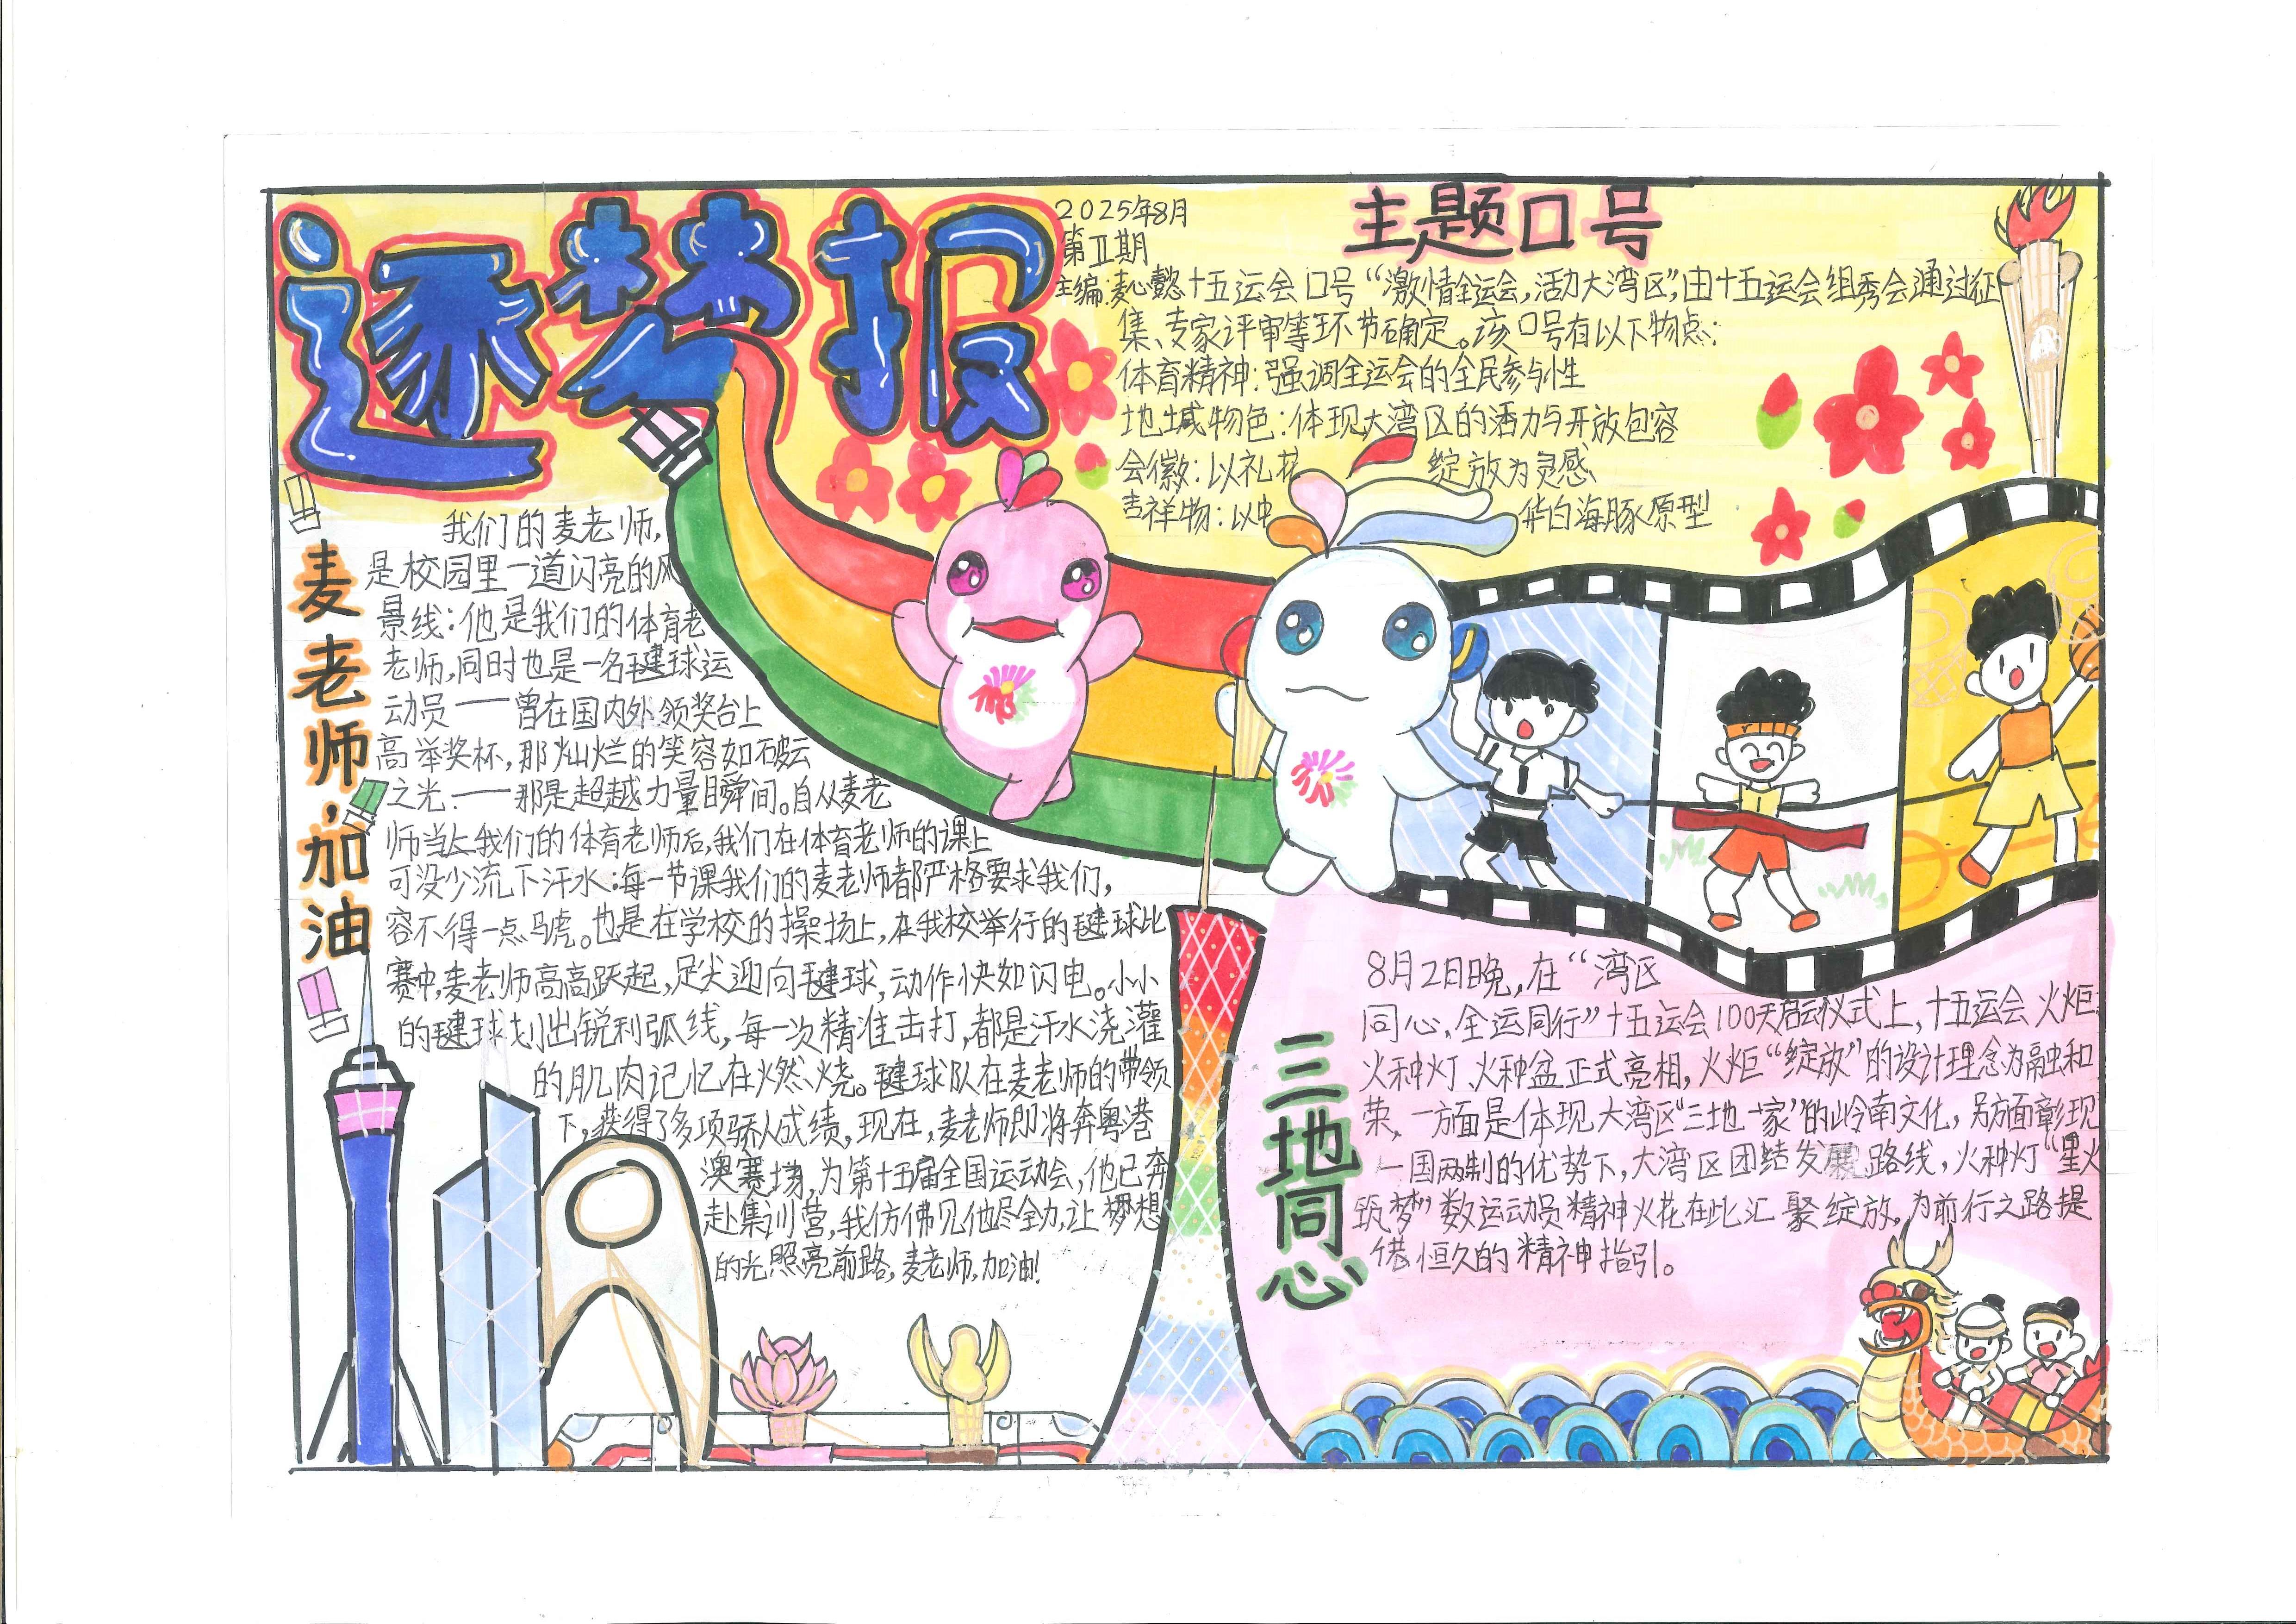 逐梦报
2025年8月
第Ⅱ期
主编:麦心懿
主题口号
十五运会口号“激情全运会,活力大湾区”,由十五运会组秀会通过征
集、专家评审等环节确定。该口号有以下物点:
体育精神:强调全运会的全民参与性
地域物色:体现大湾区的活力与开放包容
会徽:以礼花绽放为灵感
吉祥物:以中华白海豚原型
麦老师,加油
我们的麦老师,
是校园里一道闪亮的风
景线:他是我们的体育老
老师,同时也是一名毽球运
动员——曾在国内外领奖台上
高举奖杯,那灿烂的笑容如破云
之光.——那是超越力量瞬间。自从麦老
师当上我们的体育老师后,我们在体育老师的课上
可没少流下汗水:每一节课我们的麦老师都严格要求我们,
容不得一点马虎。也是在学校的操场上,在我校举行的毽球比
赛中,麦老师高高跃起,足尖迎向毽球,动作快如闪电。小小
的毽球划出锐利弧线,每一次精准击打,都是汗水浇灌
的肌肉记忆在燃烧。毽球队在麦老师的带领
下,获得了多项骄人成绩,现在,麦老师即将奔粤港
澳赛场,为第十五届全国运动会,他已奔
赴集训营,我仿佛见他尽全力,让梦想
的光照亮前路,麦老师,加油!
三地同心
8月2日晚,在“湾区
同心,全运同行”十五运会100天启动仪式上,十五运会火炬
火种灯、火种盆正式亮相,火炬“绽放”的设计理念为融和
荣,一方面是体现大湾区“三地一家”的岭南文化,另方面彰现
一国两制的优势下,大湾区团结发展路线,火种灯“星火
筑梦”数运动员精神火花在此汇聚绽放,为前行之路提
供恒久的精神指引。